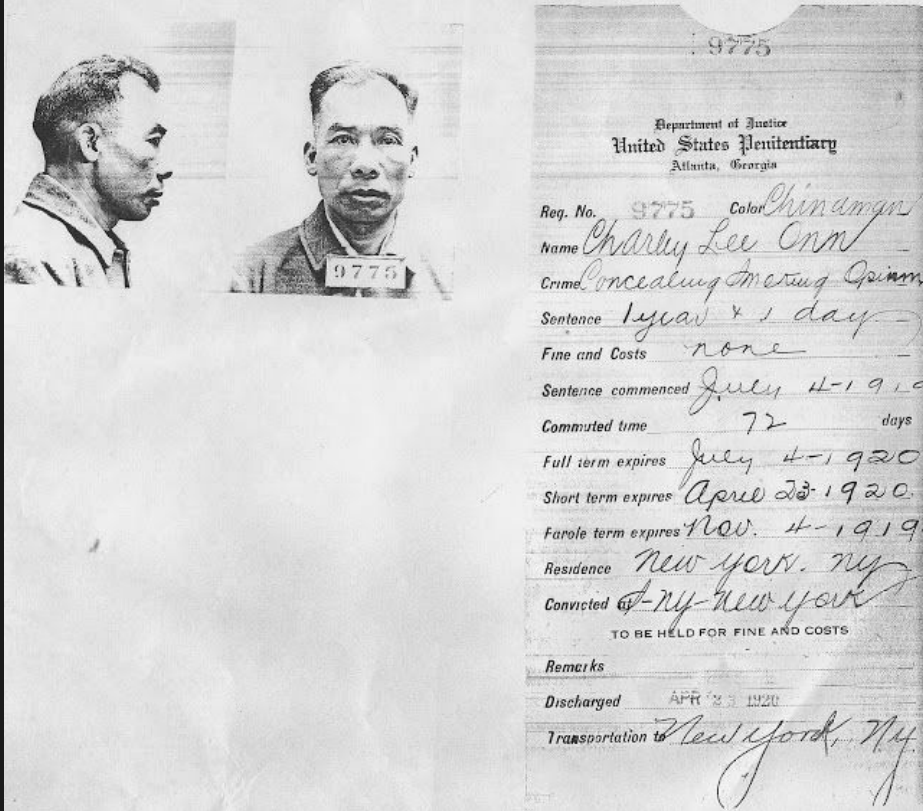 9775
9775
Department of Justice
United States Penitentiary
Atlanta, Georgia
Reg. No. 9775 Color Chinaman
Name Charley Lee Onn
Crime Concealing Smoking Opium
Sentence 1 year & 1 day
Fine and Costs none
Sentence commenced July 4-191
Commuted time 72 days
Full term expires July 4-1920
Short term expires April 23-1920
Parole term expires Nov. 4-1919
Residence New York. NY
Convicted of S-NY-New York
TO BE HELD FOR FINE AND COSTS
Remarks
Discharged APR 23 1920
Transportation to New York, NY